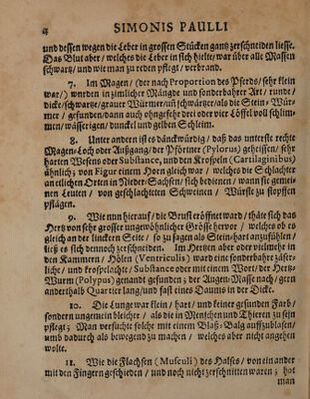 4 SIMONIS PAULLI
und dessen wegen die Leber in grossen Stücken gantz zerschneiden liesse.
Das Blut aber / welches die Leber in sich hielte / war über alle Massen
schwartz / und wie man zu reden pflegt / verbrand.
7. Im Magen / (der nach Proportion des Pferds / sehr klein
war /) worden in zimlicher Mängde und sonderbahrer Art / runde /
dicke / schwartze / grauer Würmer uñ schwärtzer / als die Stein-Wür-
mer / gefunden / dann auch ohngefehr drei oder vier Löffel voll schlim-
men / wässerigen / dunckel und gelben Schleim.
8. Unter andern ist es dänckwürdig / daß das unterste rechte
Magen-Loch oder Außgang / der Pförtner (Pylorus) geheissen / sehr
harten Wesens oder Substance, und den Krospeln (Cartilaginibus)
ähnlich / von Figur einem Horn gleich war / welches die Schlachter
an etlichen Orten in Nieder-Sachsen / sich bedienen / wann sie gemei-
nen Leuten / von geschlachteten Schweinen / Würste zu stopffen
pflägen.
9. Wie nun hierauf / die Brust eröffnet ward / thäte sich das
Hertz von sehr grosser ungewöhnlicher Grösse hervor / welches ob es
gleich an der lincken Seite / so zu sagen als Stein-hart anzufühlen /
ließ es sich dennoch zerschneiden. Im Hertzen aber oder vielmehr in
den Kammern / Hölen (Ventriculis) ward eine sonderbahre zäser-
liche / und krospelachte / Substance oder mit einem Wort / der Hertz-
Wurm (Polypus) genant gefunden; der Augen-Masse nach / gern
anderthalb Quartier lang / und fast eines Daums in der Dicke.
10. Die Lunge war klein / hart / und keiner gesunden Farb /
sondern ungemein bleicher / als die in Menschen und Thieren zu sein
pflegt; Man versuchte solche mit einem Blaß-Balg auffzublasen /
umb dadurch als bewegend zu machen / welches aber nicht angehen
wolte.
11. Wie die Flachsen (Musculi) des Halses / von einander
mit den Fingern geschieden / und noch nicht zerschnitten waren / hat
man